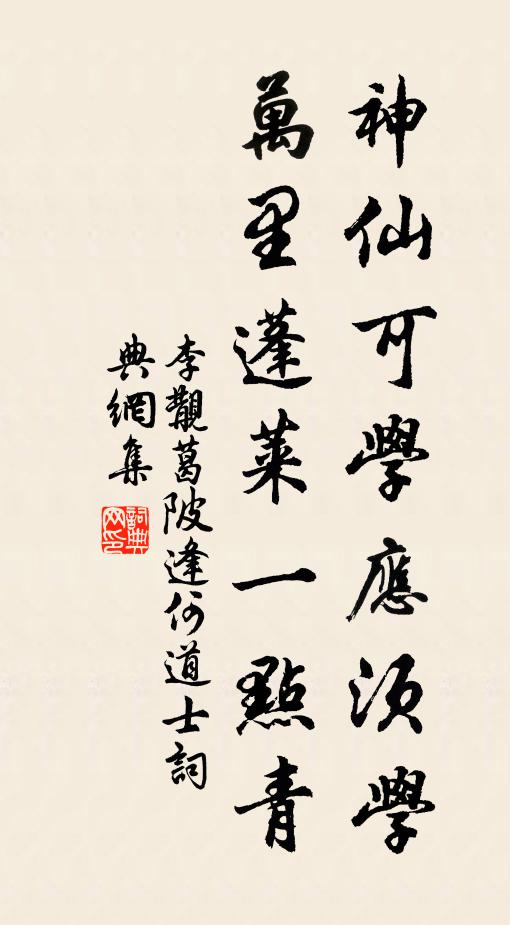 神仙可學應須學
萬里蓬萊一點青
李覯葛陂逢何道士詞
典網集
詞典網印